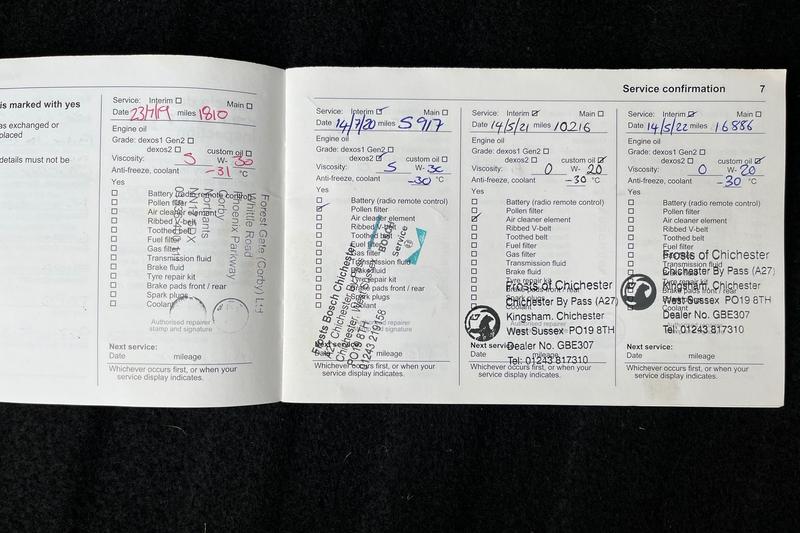 is marked with yes
as exchanged or
placed
details must not be
Service: Interim ☐ Main ☐
Date 23/7/19 miles 1810
Engine oil
Grade: dexos1 Gen2 ☐
dexos2 ☐ custom oil ☐
Viscosity: 5 W- 30
Anti-freeze, coolant -31 °C
Yes
☐ Battery (radio remote control)
☐ Pollen filter
☐ Air cleaner element
☐ Ribbed V-belt
☐ Toothed belt
☐ Fuel filter
☐ Gas filter
☐ Transmission fluid
☐ Brake fluid
☐ Tyre repair kit
☐ Brake pads front / rear
☐ Spark plugs
☐ Coolant
Authorised repairer
stamp and signature
Forest Gate (Corby) Ltd
Whittle Road
Phoenix Parkway
Corby
Northants
Next service:
Date mileage
Whichever occurs first, or when your
service display indicates.
Service confirmation 7
Service: Interim ☑ Main ☐
Date 14/7/20 miles 5917
Engine oil
Grade: dexos1 Gen2 ☐
dexos2 ☑ custom oil ☐
Viscosity: 5 W- 30
Anti-freeze, coolant -30 °C
Yes
☐ Battery (radio remote control)
☑ Pollen filter
☐ Air cleaner element
☐ Ribbed V-belt
☐ Toothed belt
☐ Fuel filter
☐ Gas filter
☐ Transmission fluid
☐ Brake fluid
☐ Tyre repair kit
☐ Brake pads front / rear
☐ Spark plugs
☐ Coolant
Bosch
Service
Frosts Bosch Chichester
A27 Chichester By-Pass
Chichester, West Sussex
PO19 8TH
01243 219158
Next service:
Date mileage
Whichever occurs first, or when your
service display indicates.
Service: Interim ☑ Main ☐
Date 14/5/21 miles 10216
Engine oil
Grade: dexos1 Gen2 ☐
dexos2 ☐ custom oil ☑
Viscosity: 0 W- 20
Anti-freeze, coolant -30 °C
Yes
☐ Battery (radio remote control)
☐ Pollen filter
☑ Air cleaner element
☐ Ribbed V-belt
☐ Toothed belt
☐ Fuel filter
☐ Gas filter
☐ Transmission fluid
☐ Brake fluid
☐ Tyre repair kit
☐ Brake pads front / rear
☐ Spark plugs
☐ Coolant
Frosts of Chichester
Chichester By Pass (A27)
Kingsham. Chichester
West Sussex PO19 8TH
Dealer No. GBE307
Tel: 01243 817310
Next service:
Date mileage
Whichever occurs first, or when your
service display indicates.
Service: Interim ☑ Main ☐
Date 14/5/22 miles 16886
Engine oil
Grade: dexos1 Gen2 ☐
dexos2 ☐ custom oil ☑
Viscosity: 0 W- 20
Anti-freeze, coolant 30 °C
Yes
☐ Battery (radio remote control)
☐ Pollen filter
☐ Air cleaner element
☐ Ribbed V-belt
☐ Toothed belt
☐ Fuel filter
☐ Gas filter
☐ Transmission fluid
☐ Brake fluid
☐ Tyre repair kit
☐ Brake pads front / rear
☐ Spark plugs
☐ Coolant
Frosts of Chichester
Chichester By Pass (A27)
Kingsham. Chichester
West Sussex PO19 8TH
Dealer No. GBE307
Tel: 01243 817310
Next service:
Date mileage
Whichever occurs first, or when your
service display indicates.